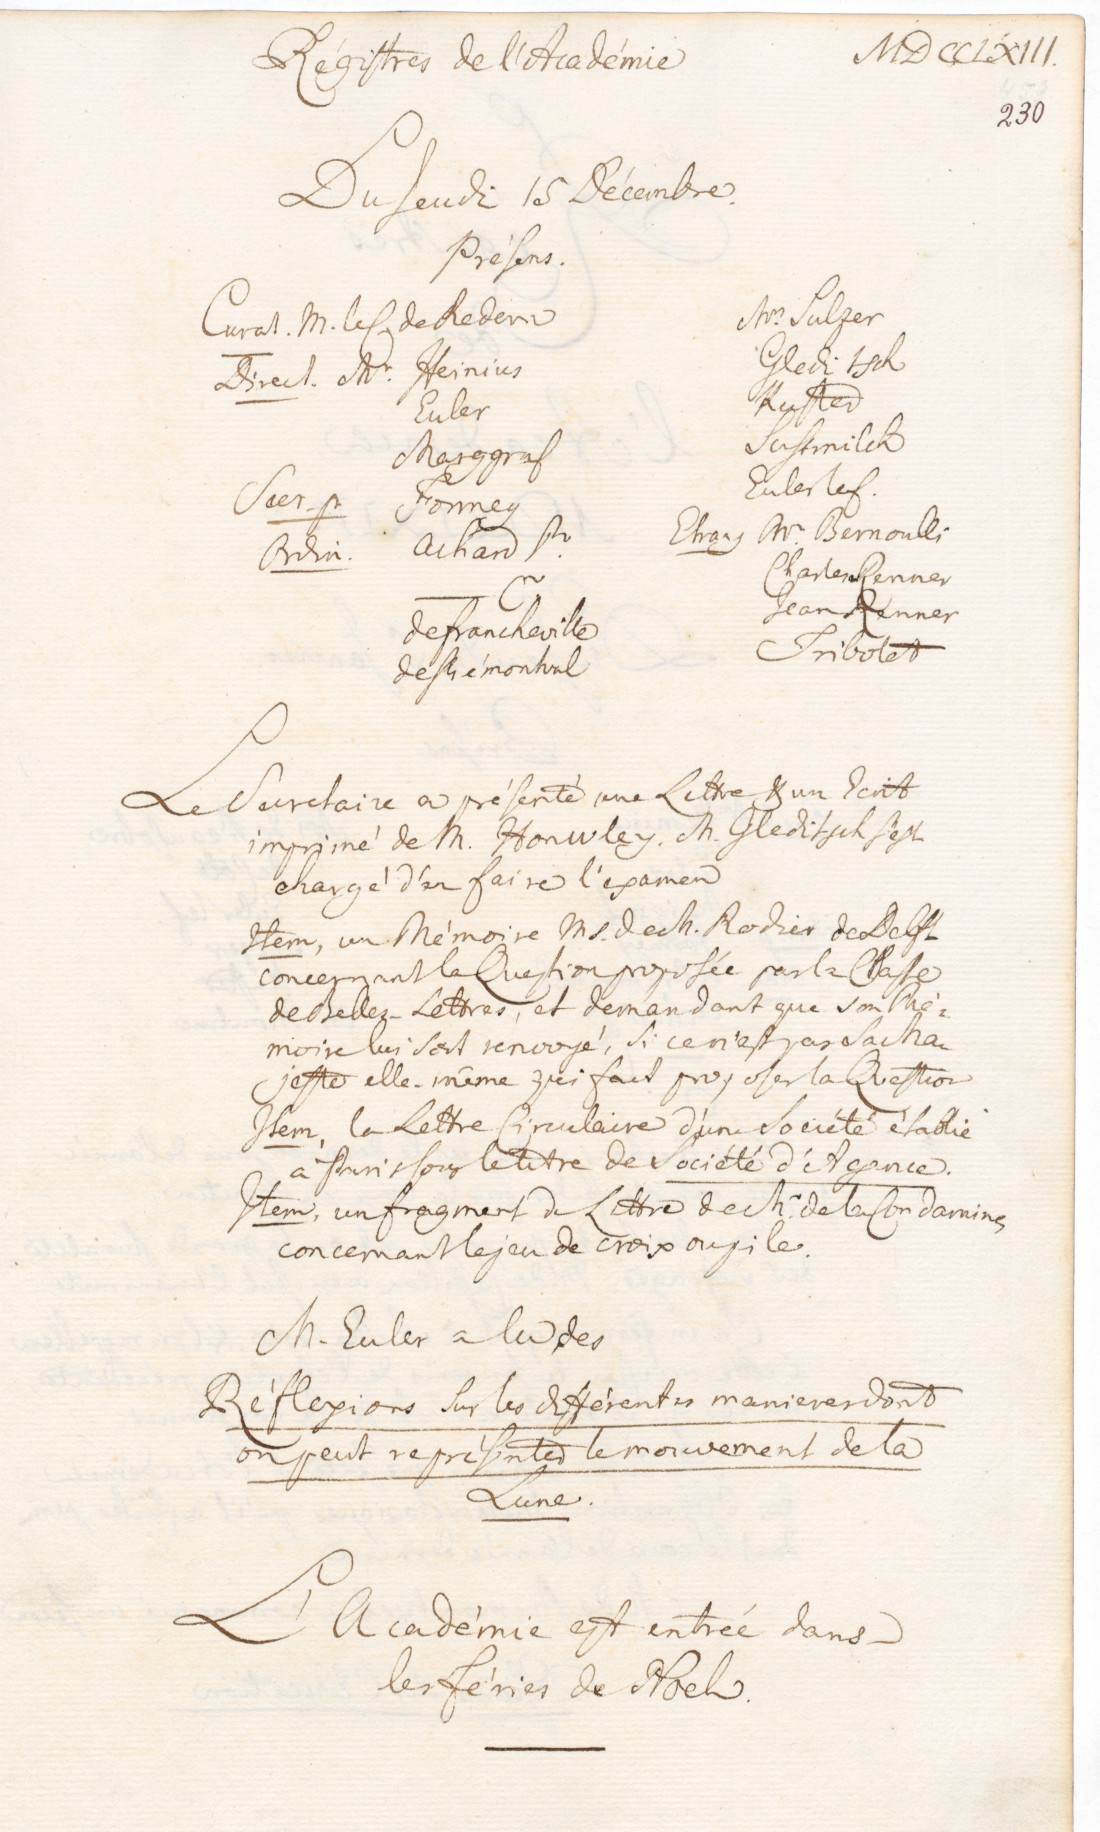 Régistres de l'Académie
MDCCLXIII.
230
Du Jeudi 15 Décembre.
Présens.
Curat. M. le C. de Redern
Direct. Mr. Heinius
Euler
Marggraf
Secr. p. Formey
Ordin. Achard Pr.
de Francheville
de Prémontval
Mrs Sulzer
Gleditsch
Kuster
Susmilch
Euler le f.
Etrang Mr. Bernoulli
Charles Renner
Jean Renner
Tribolet
Le Secretaire a présenté une Lettre & un Ecrit
imprimé de M. Gleditsch s'est
chargé d'en faire l'examen
Item, un Mémoire Ms. de M. Rodier de Delft
concernant la Question proposée par la Classe
de Belles-Lettres, et demandant que son Mé-
moire lui soit renvoyé, si ce n'est pas Sa Ma-
jesté elle-même qui fait proposer la Question
Item, la Lettre Circulaire d'une Société établie
à Paris sous le titre de Société d'Agence.
Item, un fragment de Lettre de Mr. de la Condamine,
concernant le jeu de croix ou pile.
M. Euler a lu des
Réflexions sur les différentes manieres dont
on peut représenter le mouvement de la
Lune.
L'Académie est entrée dans
les féries de Noel.